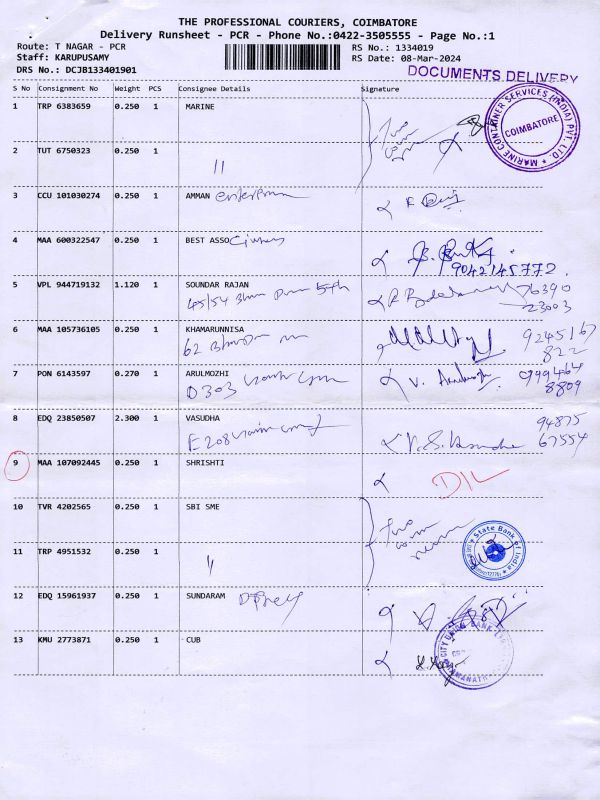 THE PROFESSIONAL COURIERS, COIMBATORE
Delivery Runsheet - PCR - Phone No.:0422-3505555 - Page No.:1
Route: T NAGAR - PCR
RS No.: 1334019
Staff: KARUPUSAMY
RS Date: 08-Mar-2024
DRS No.: DCJB133401901
DOCUMENTS DELIVERY
S No Consignment No Weight PCS Consignee Details Signature
1 TRP 6383659 0.250 1 MARINE
MARINE CONTAINER SERVICES (INDIA) PVT. LTD. COIMBATORE
2 TUT 6750323 0.250 1 "
3 CCU 101030274 0.250 1 AMMAN
4 MAA 600322547 0.250 1 BEST ASSO
9042145772
5 VPL 944719132 1.120 1 SOUNDAR RAJAN
45/54
76390
23003
6 MAA 105736105 0.250 1 KHAMARUNNISA
62
9245167
822
7 PON 6143597 0.270 1 ARULMOZHI
D303
999464
8809
8 EDQ 23850507 2.300 1 VASUDHA
E208
V.S. Vasudha
94875
67554
9 MAA 107092445 0.250 1 SHRISHTI
DIL
10 TVR 4202565 0.250 1 SBI SME
State Bank of India
11 TRP 4951532 0.250 1 "
12 EDQ 15961937 0.250 1 SUNDARAM
13 KMU 2773871 0.250 1 CUB
CITY UNION BANK